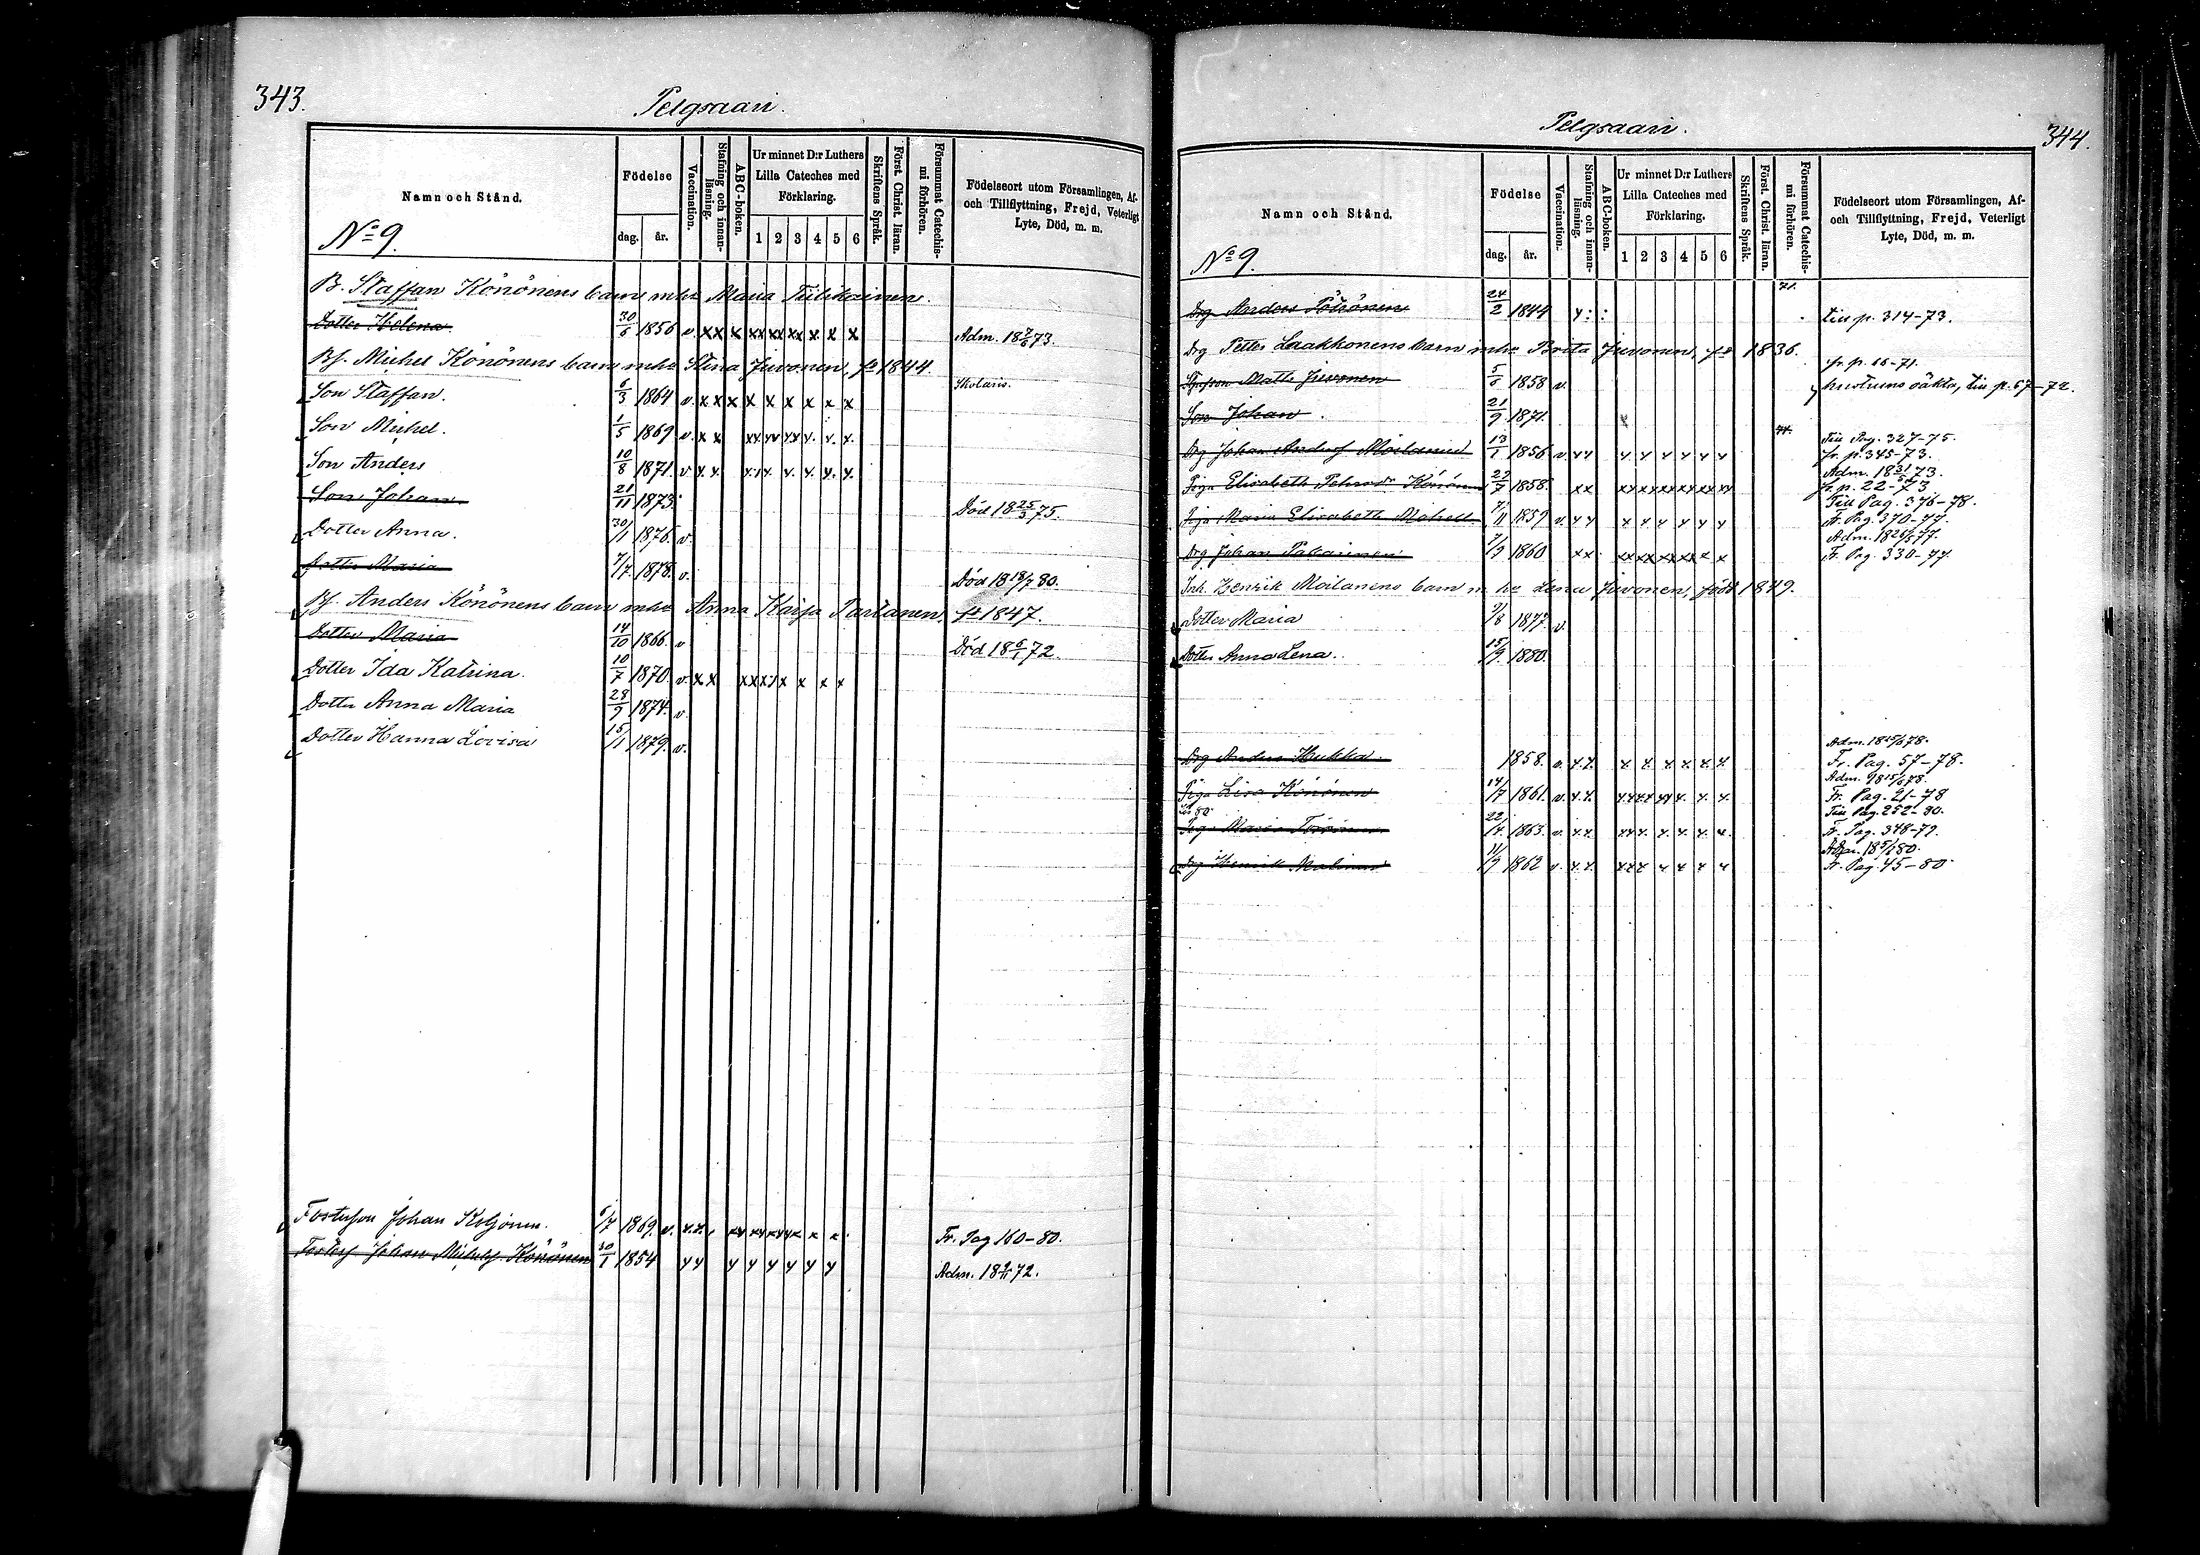 343.
Pelgsaari.
Namn och Stånd.
Födelse
dag. år.
Vaccination.
Stafning och innanläsning.
ABC-boken.
Ur minnet D:r Luthers Lilla Cateches med Förklaring.
1 2 3 4 5 6
Skriftens Språk.
Först. Christ. läran.
Försummat Catechismi förhören.
Födelseort utom Församlingen, Af- och Tillflyttning, Frejd, Veterligt Lyte, Död, m. m.
No 9.
B. Staffan Könönens barn mhu Maria Tiilikainen.
Dotter Helena. 30/6 1856 v. xx x xx xx xx x. x x Adm. 18 2/6 73.
Bf. Michel Könönens barn mhu Stina Juvonen, fd 1844.
Son Staffan. 6/3 1864 v. x x x x x x x x x Skolaris.
Son Michel. 1/5 1869 v. x x xx xx xx x. x. x.
Son Anders 10/8 1871. v x. x. x.x x x. x. x. x.
Son Johan. 21/11 1873. Död 18 25/3 75.
Dotter Anna. 30/1 1876. v.
Dotter Maria 7/7 1878. v. Död 18 18/7 80.
Bf. Anders Könönens barn mhu Anna Kaisa Partanen, fd 1847.
Dotter Maria 14/10 1866. v Död 18 6/1 72.
Dotter Ida Katrina. 10/7 1870. v. x x xx x x x x x x
Dotter Anna Maria 28/9 1874. v.
Dotter Hanna Lovisa 15/11 1879. v.
Fosterson Johan 6/7 1869. v. x.x. xx xx xx x x x. Fr. Pag 160-80.
Johan Michelsf. Könönen 30/1 1854 x x x x x x x x Adm. 18 2/11 72.
Pelgsaari.
344.
Namn och Stånd.
Födelse
dag. år.
Vaccination.
Stafning och innanläsning.
ABC-boken.
Ur minnet D:r Luthers Lilla Cateches med Förklaring.
1 2 3 4 5 6
Skriftens Språk.
Först. Christ. läran.
Försummat Catechismi förhören.
Födelseort utom Församlingen, Af- och Tillflyttning, Frejd, Veterligt Lyte, Död, m. m.
No 9.
71.
Drg Anders 24/2 1844 x : : till p. 314-73.
Drg Petter Laakkonens barn mhu Brita Juvonen, fd 1836.
fr. p. 16-71.
Matts Juvonen 5/6 1858 v. hustruns oäkta, till p. 67-72.
Son Johan. 21/9 1871.
71. Till Pag. 327-75.
Drg Johan Moilanen 13/1 1856 v x x x x x x x x fr. p. 345-73.
Adm. 18 31/5 73.
Piga Elisabeth Könönen 22/7 1858. x x xx xx xx xx xx xx fr. p. 22-73
Till Pag. 376-78.
Piga Maria Elisabeth 7/11 1859 v. x x x x x x x x Fr. Pag. 370-77.
Adm. 18 20/5 77.
Drg Johan Pakarinen 7/9 1860 x x xx xx xx xx x x Fr. Pag. 330-77.
Inh. Henrik Moilanens barn m. hu Lena Juvonen, född 1849.
Dotter Maria 9/3 1877. v.
Dotter Anna Lena. 15/9 1880.
Adm. 18 15/6 78.
Drg Anders Hukka. 1858. v. x.x. x. x. x. x. x. x. Fr. Pag. 57-78.
Adm. 18 15/6 78.
Piga Lisa Könönen 14/7 1861. v. x.x. x.x x.x xx x. x. x. Fr. Pag. 21-78
Till Pag. 252-80.
Piga Maria 22/4 1863. v. x.x. xx x. x. x. x. x. Fr. Pag. 348-79.
Adm. 18 5/6 80.
Drg Henrik Malinen 11/9 1862 v. x.x. xx x x x x x Fr. Pag. 45-80